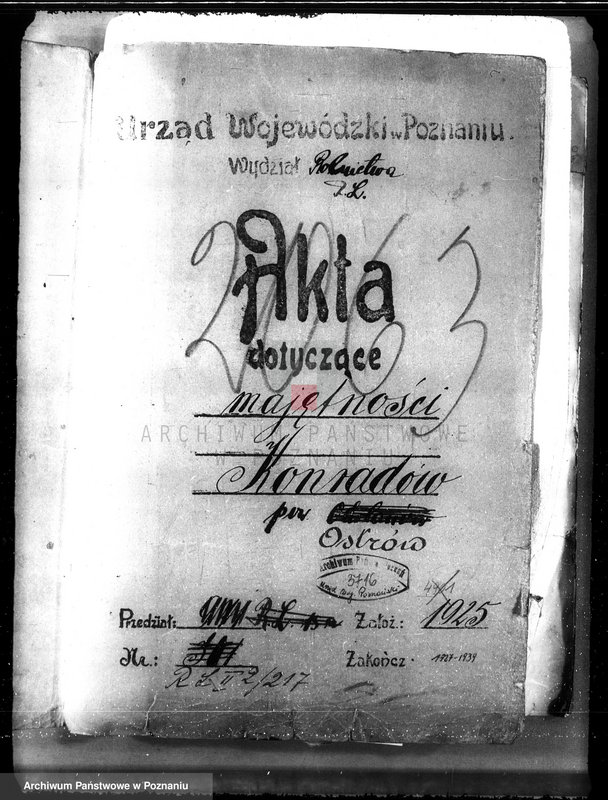 Urząd Wojewódzki w Poznaniu.
Wydział Rolnictwa
R.L.
2063
Akta
dotyczące
majętności
ARCHIWUM PAŃSTWOWE
W POZNANIU
Konradów
pow
Ostrów
Archiwum Państw
3716
Urząd Woj. Poznański
Przedział: R.L. Założ.: 1925
Nr.: Zakończ. 1927-1939
R L II 2/217
Archiwum Państwowe w Poznaniu